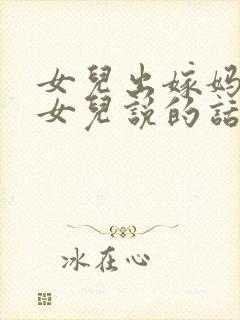 女兒出嫁媽
女兒說的話
冰在心